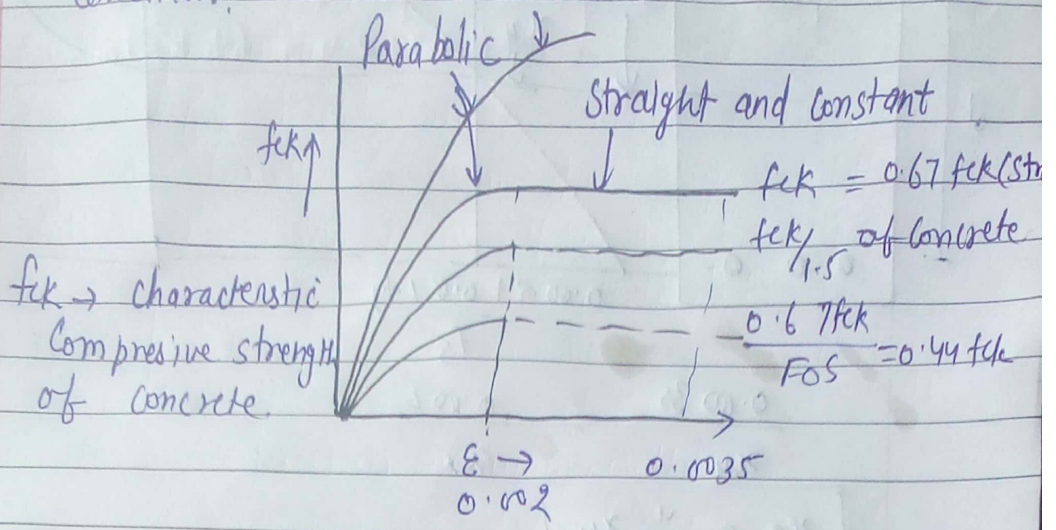 Parabolic
Straight and Constant
fck↑
fck = 0.67 fck (Str
fck/1.5 of Concrete
fck → characterstic
Compresive strength
of concrete.
0.67fck
FOS
=0.44 fck
ε →
0.002
0.0035